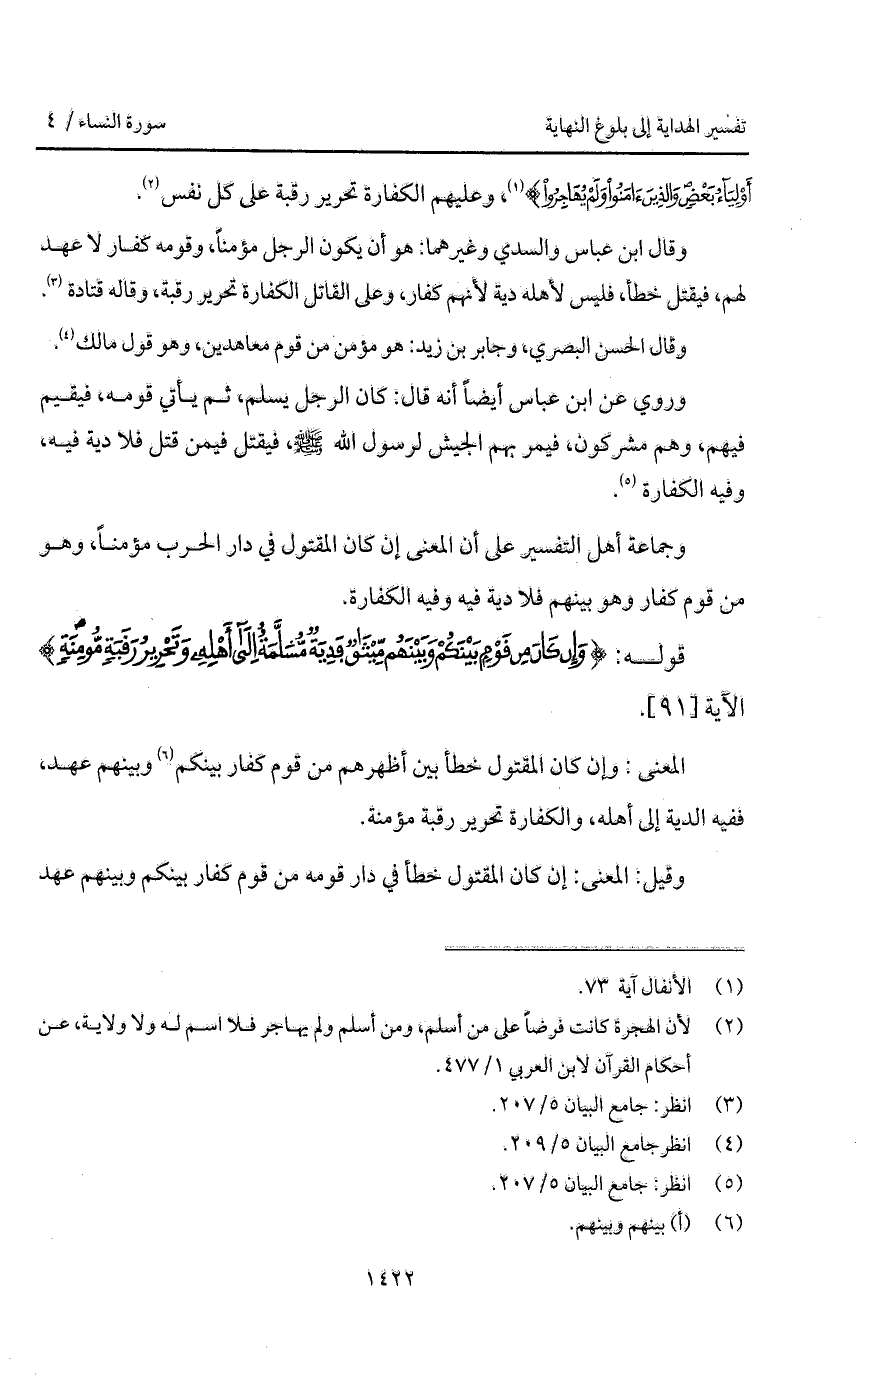 تفسير الهداية إلى بلوغ النهاية
سورة النساء / ٤
أَوْلِيَآءُ بَعْضٍ وَالذِينَ ءَامَنُواْ وَلَمْ يُهَاجِرُواْ﴾(١)، وعليهم الكفارة تحرير رقبة على كل نفس(٢).
وقال ابن عباس والسدي وغيرهما: هو أن يكون الرجل مؤمناً، وقومه كفار لا عهد
لهم، فيقتل خطأ، فليس لأهله دية لأنهم كفار، وعلى القاتل الكفارة تحرير رقبة، وقاله قتادة (٣).
وقال الحسن البصري، وجابر بن زيد: هو مؤمن من قوم معاهدين، وهو قول مالك(٤).
وروي عن ابن عباس أيضاً أنه قال: كان الرجل يسلم، ثم يأتي قومه، فيقيم
فيهم، وهم مشركون، فيمر بهم الجيش لرسول الله ﷺ، فيقتل فيمن قتل فلا دية فيه،
وفيه الكفارة (٥).
وجماعة أهل التفسير على أن المعنى إن كان المقتول في دار الحرب مؤمناً، وهو
من قوم كفار وهو بينهم فلا دية فيه وفيه الكفارة.
قوله: ﴿وَإِن كَانَ مِن قَوْمٍ بَيْنَكُمْ وَبَيْنَهُم مِّيثَٰقٌ فَدِيَةٌ مُّسَلَّمَةٌ اِلَىٰٓ أَهْلِهِۦ وَتَحْرِيرُ رَقَبَةٍ مُّومِنَةٍ﴾
الآية [٩١].
المعنى : وإن كان المقتول خطأ بين أظهرهم من قوم كفار بينكم(٦) وبينهم عهد،
ففيه الدية إلى أهله، والكفارة تحرير رقبة مؤمنة.
وقيل: المعنى: إن كان المقتول خطأ في دار قومه من قوم كفار بينكم وبينهم عهد
(١) الأنفال آية ٧٣.
(٢) لأن الهجرة كانت فرضاً على من أسلم، ومن أسلم ولم يهاجر فلا اسم له ولا ولاية، عن
أحكام القرآن لابن العربي ١/ ٤٧٧.
(٣) انظر: جامع البيان ٥/ ٢٠٧.
(٤) انظر جامع البيان ٥/ ٢٠٩.
(٥) انظر: جامع البيان ٥/ ٢٠٧.
(٦) (أ) بينهم وبينهم.
١٤٢٢